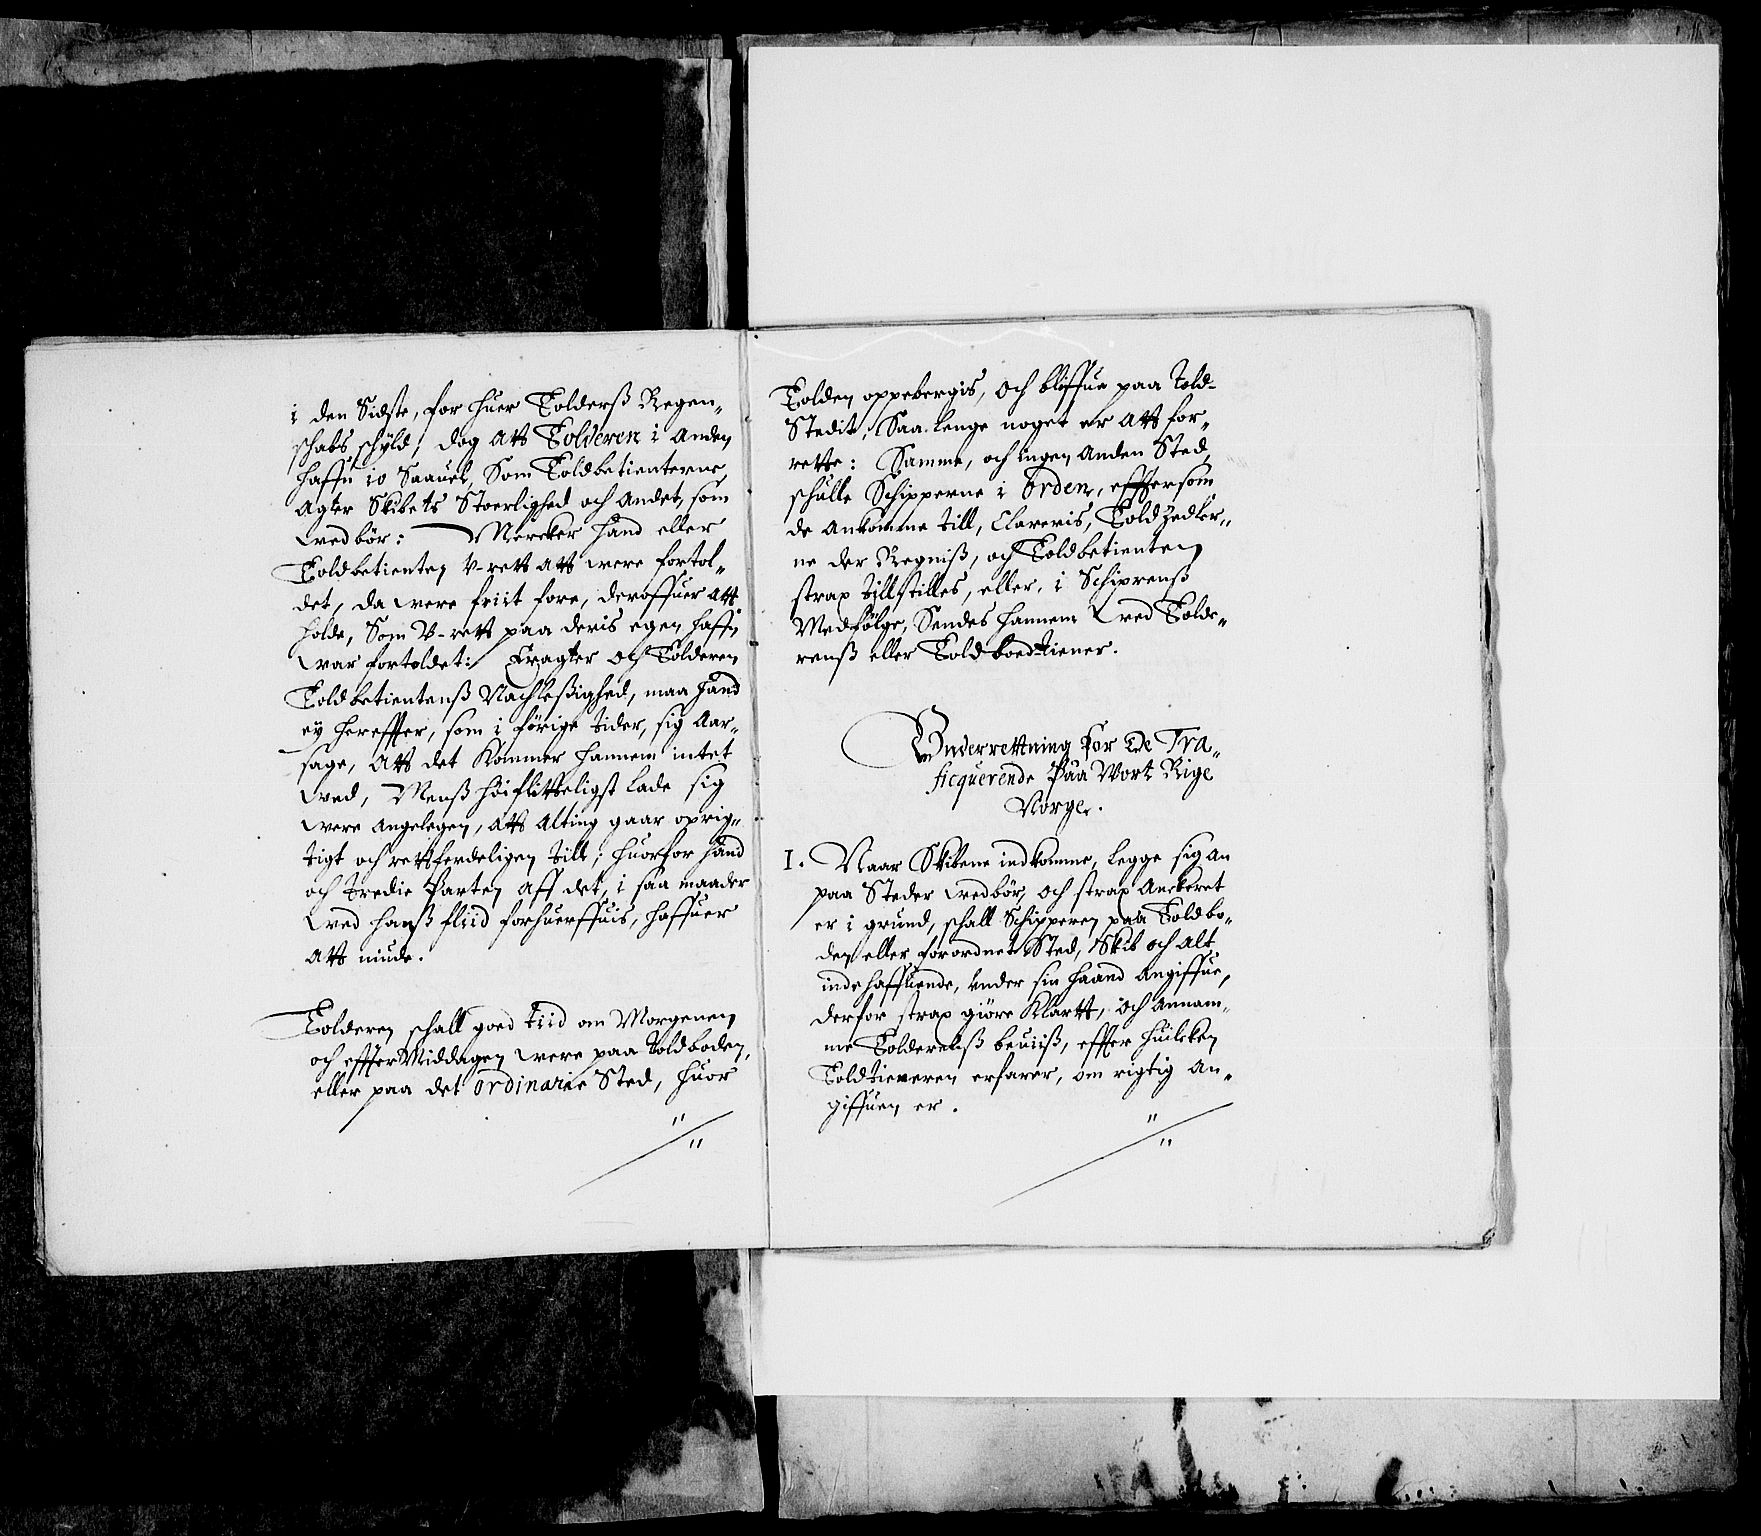 i den Sidste, for huer Tolderß Regen„
schabs schyld; dog att Tolderen i anden
haffn io saauel, som Toldbetienterne,
agter Skibets Stoerlighed och andet, som
wedbör: Mercker hand eller
Toldbetienten V-rett att were fortol„
det, da were friit fore, deroffuer att
holde, som V-rett paa deris egen haffn
war fortoldet: Eragter och Tolderen
Toldbetientenß Nachleßighed, maa hand
ey hereffter, som i förige tider, sig aar„
sage, att det kommer hannem intet
wed, Menß höifliitteligst lade sig
were angelegen, att alting gaar oprig„
tigt och rettferdeligen till; huorfor hand
och tredie Parten aff det, i saa maader
wed hanß fliid forhuerffuis, haffuer
att niude.
Tolderen schall goed tiid om Morgenen
och effter Middagen were paa Toldboden,
eller paa det ordinarie Sted, huor
Tolden oppebergis, och bliffue paa told-
Stedit, Saa lenge noget er att for„
rette: Samme, och ingen anden Sted,
schulle Schipperne i Orden, effter som
de ankomme till, Clareris, Toldzedler„
ne der Regniß, och Toldbetienten
strax tillstilles, eller, i Schiprenß
Medfölge, Sendes hannem wed Tolde„
renß eller Toldboedtiener.
Vnderrettning for De Tra„
ficquerende Paa Wort Rige
Norge.
1. Naar Skibene indkomme, legge sig an
paa Steder wedbör, och strax Anckeret
er i grund, schall Schipperen paa Toldbo„
den eller forordnet Sted, Skib och alt
indehaffuende, vnder sin haand angiffue,
derfor strax giöre Klartt, och annam„
me Tolderenß beuiiß, effter huilcken
Toldtieneren erfarer, om rigtig an„
giffuen er.